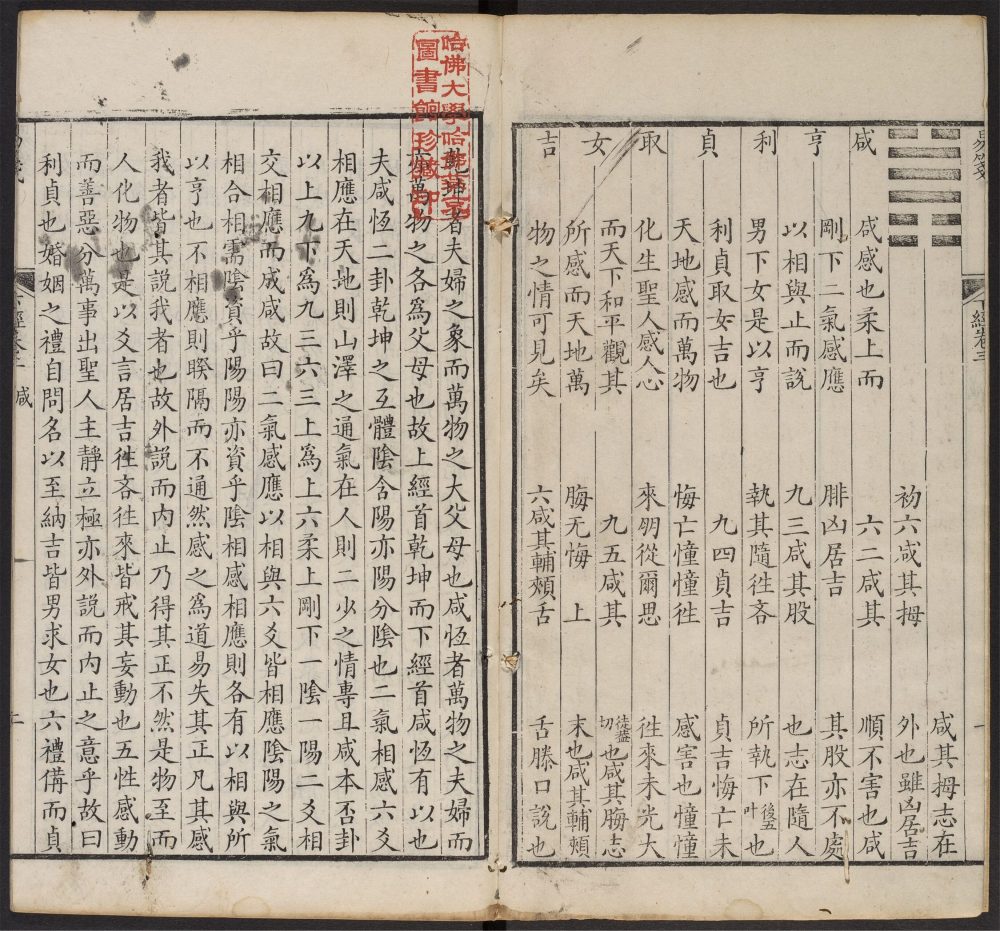 易箋
下經卷三
一
咸亨利貞取女吉
咸感也柔上而
剛下二氣感應
以相與止而說
男下女是以亨
利貞取女吉也
天地感而萬物
化生聖人感人心
而天下和平觀其
所感而天地萬
物之情可見矣
初六咸其拇
六二咸其
腓凶居吉
九三咸其股
執其隨徃吝
九四貞吉
悔亡憧憧徃
來朋從爾思
九五咸其
脢无悔 上
六咸其輔頰舌
咸其拇志在
外也雖凶居吉
順不害也咸
其股亦不處
也志在隨人
所執下後五叶也
貞吉悔亡未
感害也憧憧
徃來未光大
也咸其脢志
末也咸其輔頰
舌滕口說也
哈佛大學哈佛燕京
圖書館珍藏印
乾坤者夫婦之象而萬物之大父母也咸恆者萬物之夫婦而
亦萬物之各為父母也故上經首乾坤而下經首咸恆有以也
夫咸恆二卦乾坤之互體陰含陽亦陽分陰也二氣相感六爻
相應在天地則山澤之通氣在人則二少之情專且咸本否卦
以上九下為九三六三上為上六柔上剛下一陰一陽二爻相
交相應而成咸故曰二氣感應以相與六爻皆相應陰陽之氣
相合相需陰資乎陽陽亦資乎陰相感相應則各有以相與所
以亨也不相應則睽隔而不通然感之為道易失其正凡其感
我者皆其說我者也故外說而內止乃得其正不然是物至而
人化物也是以爻言居吉徃吝徃來皆戒其妄動也五性感動
而善惡分萬事出聖人主靜立極亦外說而內止之意乎故曰
利貞也婚姻之禮自問名以至納吉皆男求女也六禮備而貞
咸